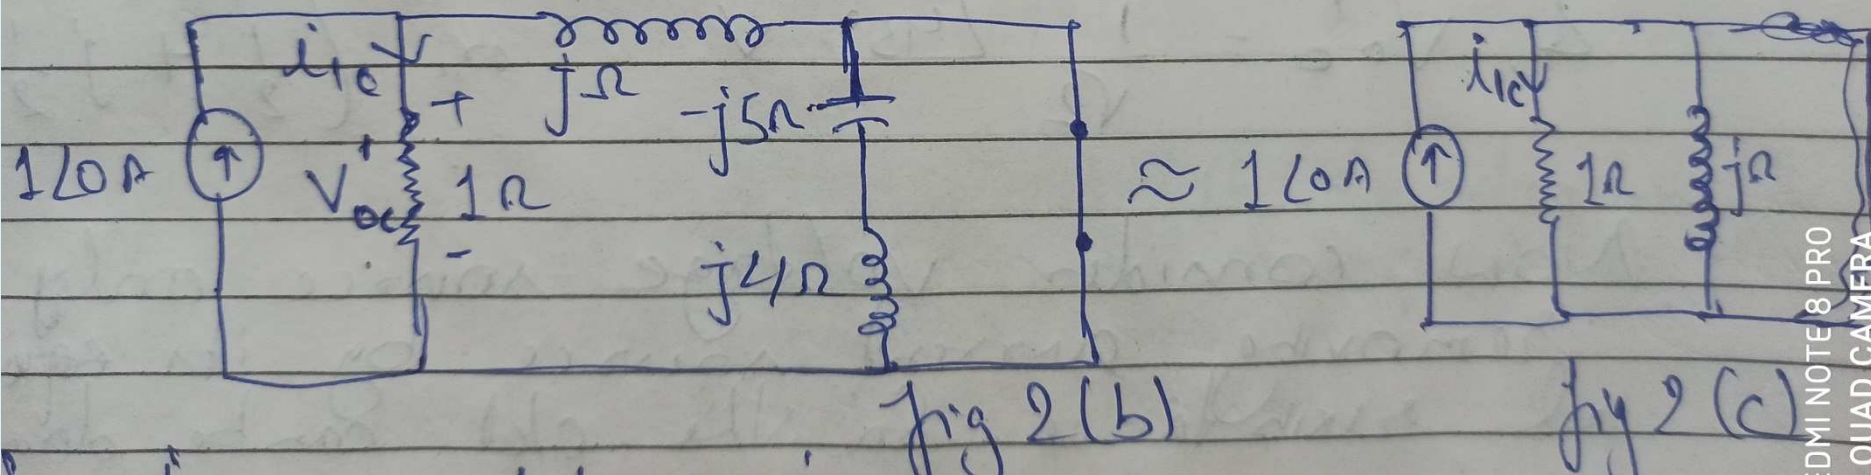 i1c
+
jΩ
-j5Ω
1∠0 A
+
Voc
1Ω
-
j4Ω
fig 2(b)
≈
1∠0 A
i1c
1Ω
jΩ
fig 2(c)
REDMI NOTE 8 PRO
QUAD CAMERA